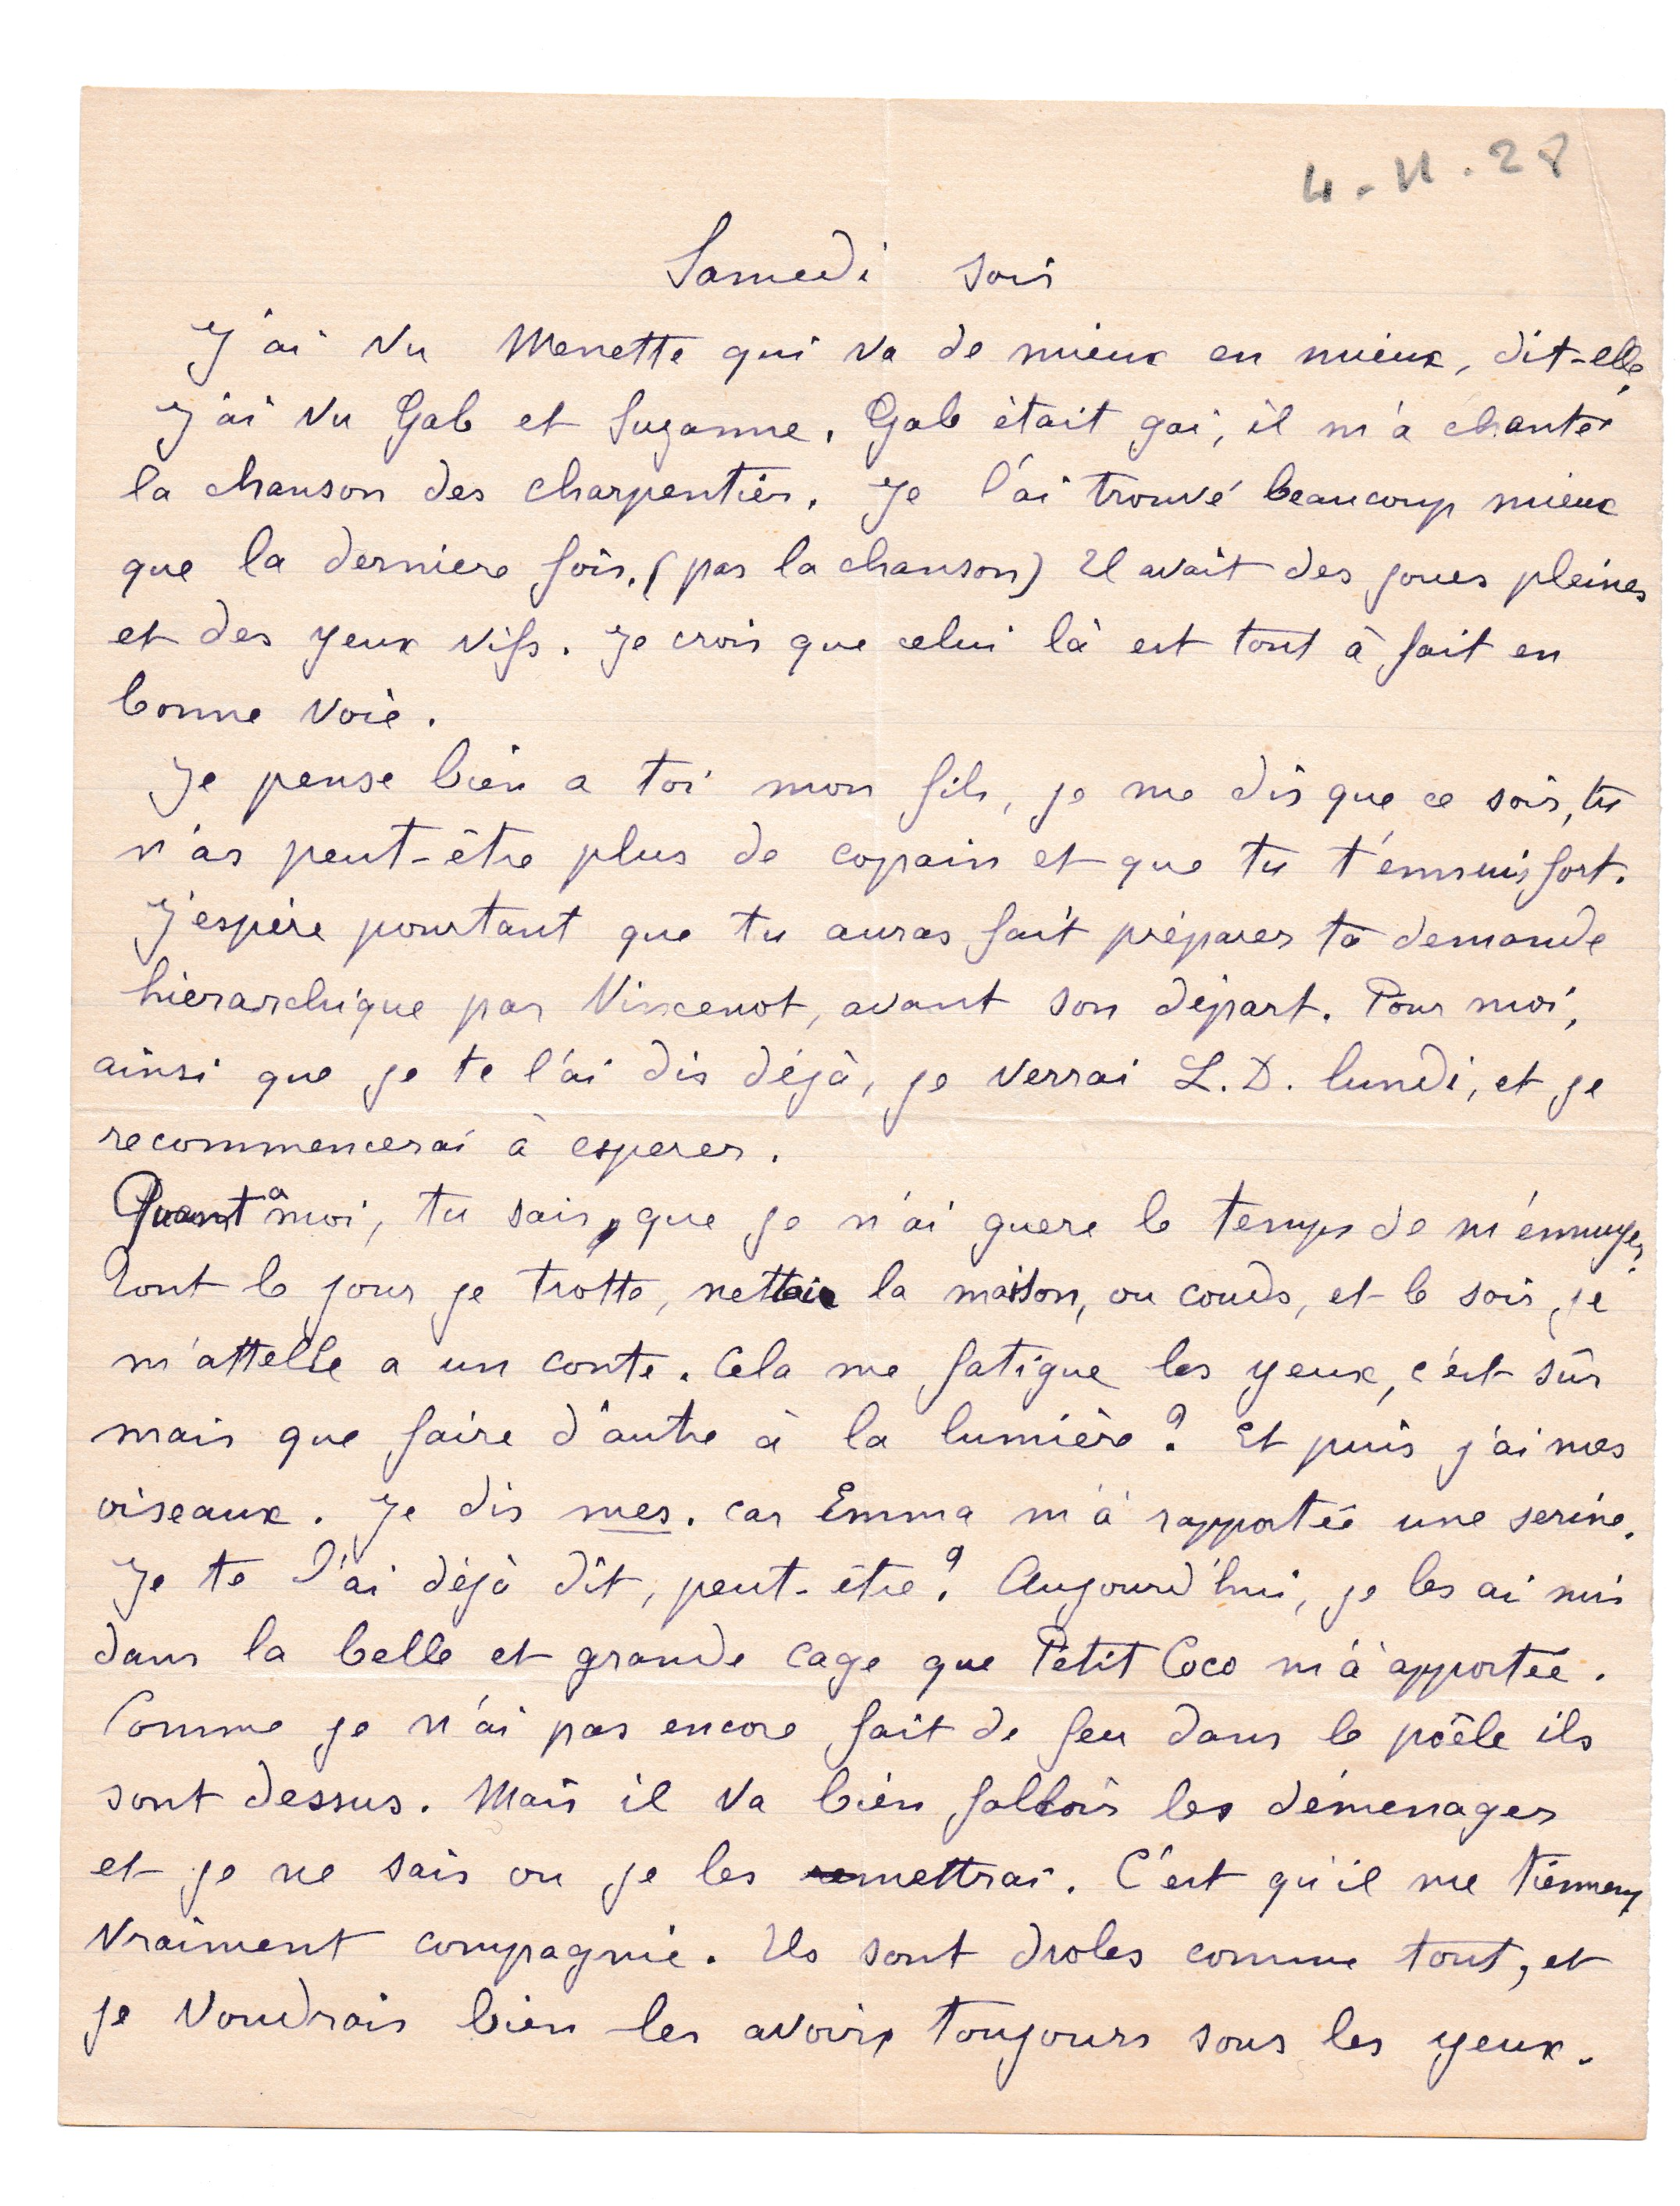 4-11.28
Samedi soir
J'ai vu Menette qui va de mieux en mieux, dit-elle.
J'ai vu Gab et Suzanne. Gab était gai, il m'a chanté
la chanson des charpentiers. Je l'ai trouvé beaucoup mieux
que la derniere fois. (pas la chanson) Il avait des joues pleines
et des yeux vifs. Je crois que celui là est tout à fait en
bonne voie.
Je pense bien a toi mon fils, je me dis que ce soir, tu
n'as peut-être plus de copain et que tu t'ennuis fort.
J'espère pourtant que tu auras fait préparer ta demande
hierarchique par Vincenot, avant son départ. Pour moi,
ainsi que je te l'ai dis déjà, je verrai L.D. lundi, et je
recommencerai à esperer.
Quant à moi, tu sais, que je n'ai guere le temps de m'ennuyer.
Tout le jour je trotte, nettoie la maison, ou couds, et le soir, je
m'attelle a un conte. Cela me fatigue les yeux, c'est sûr
mais que faire d'autre à la lumière ? Et puis j'ai mes
oiseaux. Je dis mes. car Emma m'a rapportée une serine.
Je te l'ai déjà dit, peut-être ? Aujourd'hui, je les ai mis
dans la belle et grande cage que Petit Coco m'a apportée.
Comme je n'ai pas encore fait de feu dans le poêle ils
sont dessus. Mais il va bien falloir les démenager
et je ne sais ou je les mettrai. C'est qu'il me tiennent
vraiment compagnie. Ils sont droles comme tout, et
je voudrais bien les avoir toujours sous les yeux.